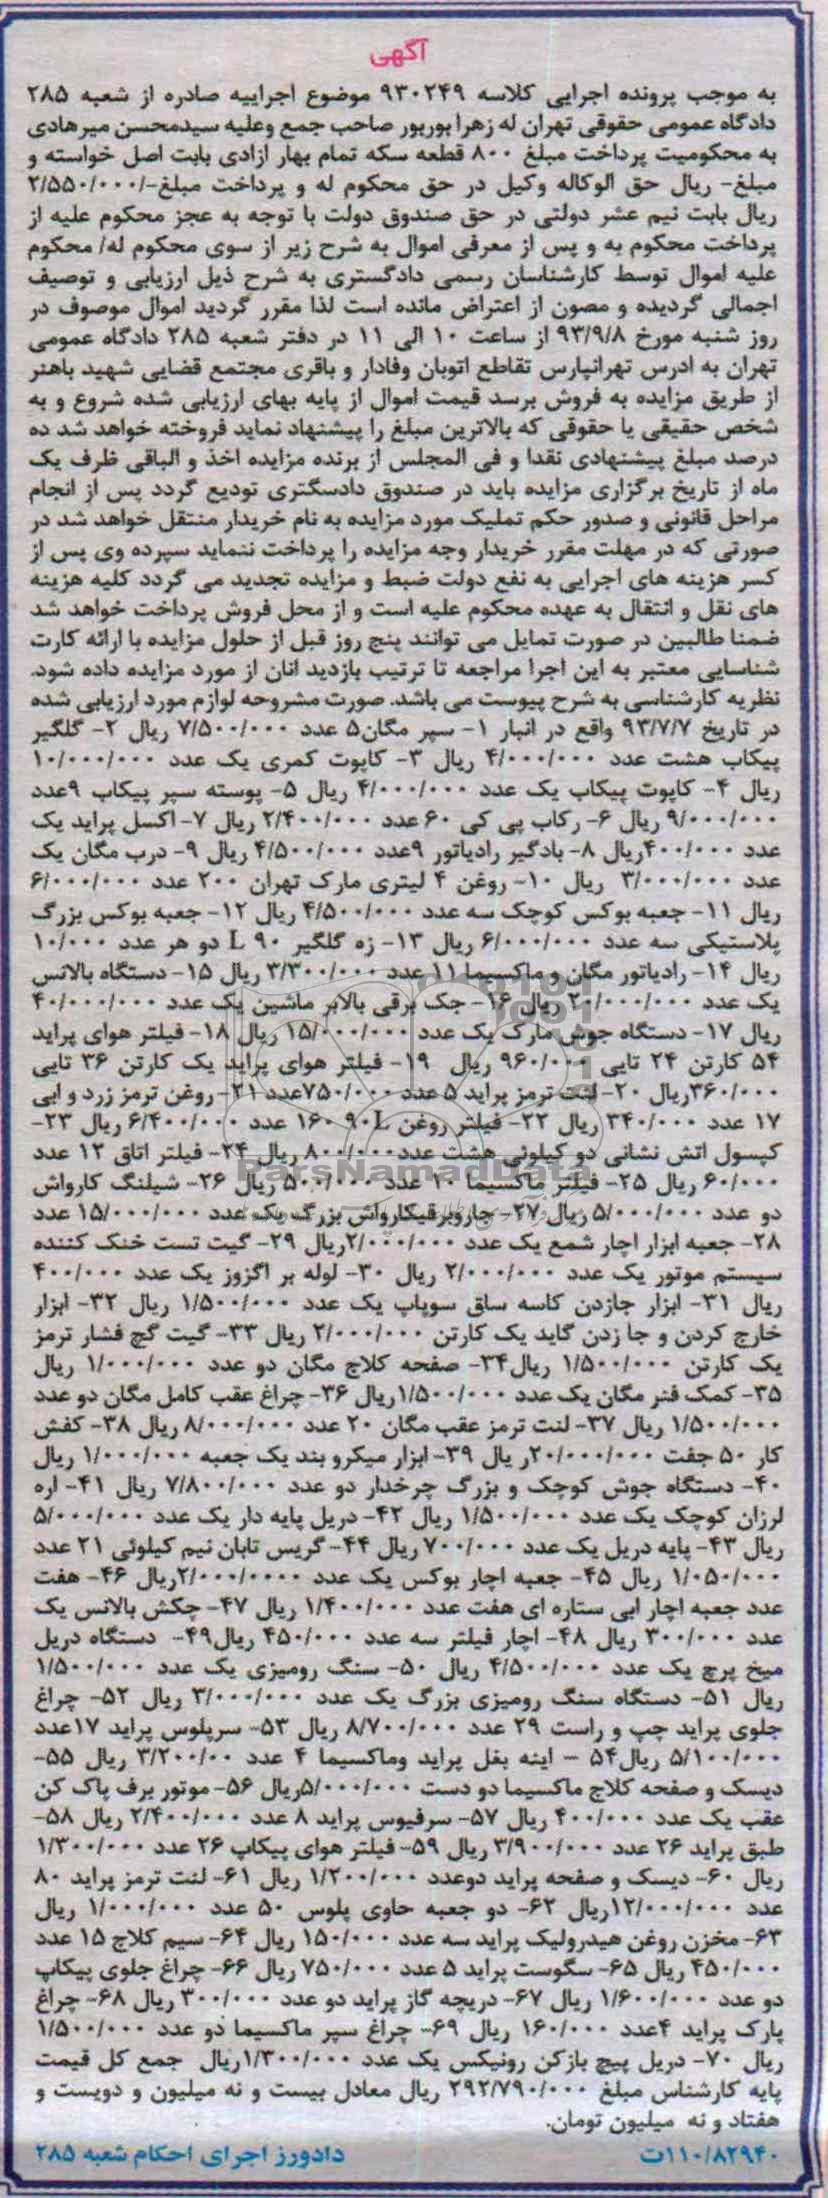 آگهی
به موجب پرونده اجرایی کلاسه ۹۳۰۲۴۹ موضوع اجراییه صادره از شعبه ۲۸۵
دادگاه عمومی حقوقی تهران له زهرا بوربور صاحب جمع وعلیه سیدمحسن میرهادی
به محکومیت پرداخت مبلغ ۸۰۰ قطعه سکه تمام بهار ازادی بابت اصل خواسته و
مبلغ- ریال حق الوکاله وکیل در حق محکوم له و پرداخت مبلغ-/۲/۵۵۰/۰۰۰
ریال بابت نیم عشر دولتی در حق صندوق دولت با توجه به عجز محکوم علیه از
پرداخت محکوم به و پس از معرفی اموال به شرح زیر از سوی محکوم له/ محکوم
علیه اموال توسط کارشناسان رسمی دادگستری به شرح ذیل ارزیابی و توصیف
اجمالی گردیده و مصون از اعتراض مانده است لذا مقرر گردید اموال موصوف در
روز شنبه مورخ ۹۳/۹/۸ از ساعت ۱۰ الی ۱۱ در دفتر شعبه ۲۸۵ دادگاه عمومی
تهران به ادرس تهرانپارس تقاطع اتوبان وفادار و باقری مجتمع قضایی شهید باهنر
از طریق مزایده به فروش برسد قیمت اموال از پایه بهای ارزیابی شده شروع و به
شخص حقیقی یا حقوقی که بالاترین مبلغ را پیشنهاد نماید فروخته خواهد شد ده
درصد مبلغ پیشنهادی نقدا و فی المجلس از برنده مزایده اخذ و الباقی ظرف یک
ماه از تاریخ برگزاری مزایده باید در صندوق دادسگتری تودیع گردد پس از انجام
مراحل قانونی و صدور حکم تملیک مورد مزایده به نام خریدار منتقل خواهد شد در
صورتی که در مهلت مقرر خریدار وجه مزایده را پرداخت ننماید سپرده وی پس از
کسر هزینه های اجرایی به نفع دولت ضبط و مزایده تجدید می گردد کلیه هزینه
های نقل و انتقال به عهده محکوم علیه است و از محل فروش پرداخت خواهد شد
ضمنا طالبین در صورت تمایل می توانند پنج روز قبل از حلول مزایده با ارائه کارت
شناسایی معتبر به این اجرا مراجعه تا ترتیب بازدید انان از مورد مزایده داده شود.
نظریه کارشناسی به شرح پیوست می باشد. صورت مشروحه لوازم مورد ارزیابی شده
در تاریخ ۹۳/۷/۷ واقع در انبار ۱- سپر مگان۵ عدد ۷/۵۰۰/۰۰۰ ریال ۲- گلگیر
پیکاب هشت عدد ۴/۰۰۰/۰۰۰ ریال ۳- کاپوت کمری یک عدد ۱۰/۰۰۰/۰۰۰
ریال ۴- کاپوت پیکاب یک عدد ۴/۰۰۰/۰۰۰ ریال ۵- پوسته سپر پیکاب ۹عدد
۹/۰۰۰/۰۰۰ ریال ۶- رکاب پی کی ۶۰ عدد ۲/۴۰۰/۰۰۰ ریال ۷- اکسل پراید یک
عدد ۴۰۰/۰۰۰ریال ۸- بادگیر رادیاتور ۹عدد ۴/۵۰۰/۰۰۰ ریال ۹- درب مگان یک
عدد ۳/۰۰۰/۰۰۰ ریال ۱۰- روغن ۴ لیتری مارک تهران ۲۰۰ عدد ۶/۰۰۰/۰۰۰
ریال ۱۱- جعبه بوکس کوچک سه عدد ۴/۵۰۰/۰۰۰ ریال ۱۲- جعبه بوکس بزرگ
پلاستیکی سه عدد ۶/۰۰۰/۰۰۰ ریال ۱۳- زه گلگیر L ۹۰ دو هر عدد ۱۰/۰۰۰
ریال ۱۴- رادیاتور مگان و ماکسیما ۱۱ عدد ۳/۳۰۰/۰۰۰ ریال ۱۵- دستگاه بالانس
یک عدد ۲۰/۰۰۰/۰۰۰ ریال ۱۶- جک برقی بالابر ماشین یک عدد ۴۰/۰۰۰/۰۰۰
ریال ۱۷- دستگاه جوش مارک یک عدد ۱۵/۰۰۰/۰۰۰ ریال ۱۸- فیلتر هوای پراید
۵۴ کارتن ۲۴ تایی ۹۶۰/۰۰۰ ریال ۱۹- فیلتر هوای پراید یک کارتن ۳۶ تایی
۳۶۰/۰۰۰ریال ۲۰- لنت ترمز پراید ۵ عدد ۷۵۰/۰۰۰عدد ۲۱- روغن ترمز زرد و ابی
۱۷ عدد ۳۴۰/۰۰۰ ریال ۲۲- فیلتر روغن L۹۰ ۱۶۰ عدد ۶/۴۰۰/۰۰۰ ریال ۲۳-
کپسول اتش نشانی دو کیلوئی هشت عدد۸۰۰/۰۰۰ ریال ۲۴- فیلتر اتاق ۱۲ عدد
۶۰/۰۰۰ ریال ۲۵- فیلتر ماکسیما ۱۰ عدد ۵۰۰/۰۰۰ ریال ۲۶- شیلنگ کارواش
دو عدد ۵/۰۰۰/۰۰۰ ریال ۲۷- جاروبرقیکارواش بزرگ یک عدد ۱۵/۰۰۰/۰۰۰ عدد
۲۸- جعبه ابزار اچار شمع یک عدد ۲/۰۰۰/۰۰۰ریال ۲۹- گیت تست خنک کننده
سیستم موتور یک عدد ۲/۰۰۰/۰۰۰ ریال ۳۰- لوله بر اگزوز یک عدد ۴۰۰/۰۰۰
ریال ۳۱- ابزار جازدن کاسه ساق سوپاپ یک عدد ۱/۵۰۰/۰۰۰ ریال ۳۲- ابزار
خارج کردن و جا زدن گاید یک کارتن ۲/۰۰۰/۰۰۰ ریال ۳۳- گیت گچ فشار ترمز
یک کارتن ۱/۵۰۰/۰۰۰ ریال۳۴- صفحه کلاچ مگان دو عدد ۱/۰۰۰/۰۰۰ ریال
۳۵- کمک فنر مگان یک عدد ۱/۵۰۰/۰۰۰ریال ۳۶- چراغ عقب کامل مگان دو عدد
۱/۵۰۰/۰۰۰ ریال ۳۷- لنت ترمز عقب مگان ۲۰ عدد ۸/۰۰۰/۰۰۰ ریال ۳۸- کفش
کار ۵۰ جفت ۲۰/۰۰۰/۰۰۰ر یال ۳۹- ابزار میکرو بند یک جعبه ۱/۰۰۰/۰۰۰ ریال
۴۰- دستگاه جوش کوچک و بزرگ چرخدار دو عدد ۷/۸۰۰/۰۰۰ ریال ۴۱- اره
لرزان کوچک یک عدد ۱/۵۰۰/۰۰۰ ریال ۴۲- دریل پایه دار یک عدد ۵/۰۰۰/۰۰۰
ریال ۴۳- پایه دریل یک عدد ۷۰۰/۰۰۰ ریال ۴۴- گریس تابان نیم کیلوئی ۲۱ عدد
۱/۰۵۰/۰۰۰ ریال ۴۵- جعبه اچار بوکس یک عدد ۲/۰۰۰/۰۰۰۰ریال ۴۶- هفت
عدد جعبه اچار ابی ستاره ای هفت عدد ۱/۴۰۰/۰۰۰ ریال ۴۷- چکش بالانس یک
عدد ۳۰۰/۰۰۰ ریال ۴۸- اچار فیلتر سه عدد ۴۵۰/۰۰۰ ریال۴۹- دستگاه دریل
میخ پرچ یک عدد ۴/۵۰۰/۰۰۰ ریال ۵۰- سنگ رومیزی یک عدد ۱/۵۰۰/۰۰۰
ریال ۵۱- دستگاه سنگ رومیزی بزرگ یک عدد ۳/۰۰۰/۰۰۰ ریال ۵۲- چراغ
جلوی پراید چپ و راست ۲۹ عدد ۸/۷۰۰/۰۰۰ ریال ۵۳- سرپلوس پراید ۱۷عدد
۵/۱۰۰/۰۰۰ ریال۵۴ - اینه بغل پراید وماکسیما ۴ عدد ۳/۲۰۰/۰۰ ریال ۵۵-
دیسک و صفحه کلاچ ماکسیما دو دست ۵/۰۰۰/۰۰۰ریال ۵۶- موتور برف پاک کن
عقب یک عدد ۴۰۰/۰۰۰ ریال ۵۷- سرفیوس پراید ۸ عدد ۲/۴۰۰/۰۰۰ ریال ۵۸-
طبق پراید ۲۶ عدد ۳/۹۰۰/۰۰۰ ریال ۵۹- فیلتر هوای پیکاپ ۲۶ عدد ۱/۳۰۰/۰۰۰
ریال ۶۰- دیسک و صفحه پراید دوعدد ۱/۲۰۰/۰۰۰ ریال ۶۱- لنت ترمز پراید ۸۰
عدد ۱۲/۰۰۰/۰۰۰ریال ۶۲- دو جعبه حاوی پلوس ۵۰ عدد ۱/۰۰۰/۰۰۰ ریال
۶۳- مخزن روغن هیدرولیک پراید سه عدد ۱۵۰/۰۰۰ ریال ۶۴- سیم کلاچ ۱۵ عدد
۴۵۰/۰۰۰ ریال ۶۵- سگوست پراید ۵ عدد ۷۵۰/۰۰۰ ریال ۶۶- چراغ جلوی پیکاپ
دو عدد ۱/۶۰۰/۰۰۰ ریال ۶۷- دریچه گاز پراید دو عدد ۳۰۰/۰۰۰ ریال ۶۸- چراغ
پارک پراید ۴عدد ۱۶۰/۰۰۰ ریال ۶۹- چراغ سپر ماکسیما دو عدد ۱/۵۰۰/۰۰۰
ریال ۷۰- دریل پیچ بازکن رونیکس یک عدد ۱/۳۰۰/۰۰۰ریال جمع کل قیمت
پایه کارشناس مبلغ ۲۹۲/۷۹۰/۰۰۰ ریال معادل بیست و نه میلیون و دویست و
هفتاد و نه میلیون تومان.
۱۱۰/۸۲۹۴۰ت دادورز اجرای احکام شعبه ۲۸۵
ParsNamadData